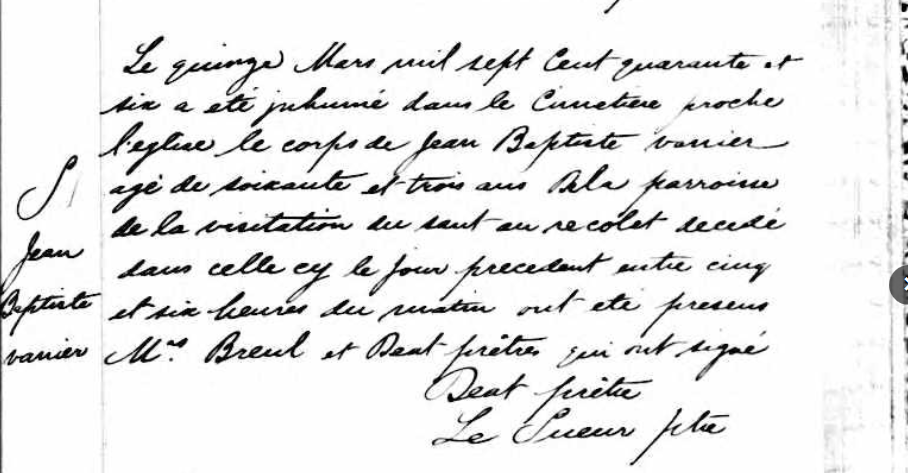 Le quinze Mars mil sept Cent quarante et
six a eté inhumé dans le Cimetiere proche
l'eglise le corps de Jean Baptiste vanier
agé de soixante et trois ans De la parroisse
de la visitation du saut au recolet decedé
dans celle cy le jour precedent entre cinq
et six heures du matin ont eté presens
Mrs. Breul et Deat prêtres qui ont signé
Deat prêtre
Le Sueur ptre
S
Jean
Baptiste
vanier